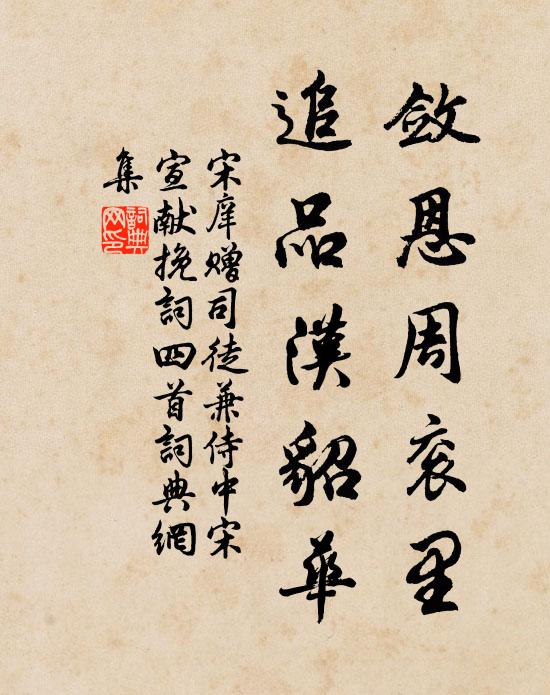 斂恩周衮里
追品漢貂華
宋庠贈司徒兼侍中宋
宣献挽詞四首詞典網
集
詞典
网印